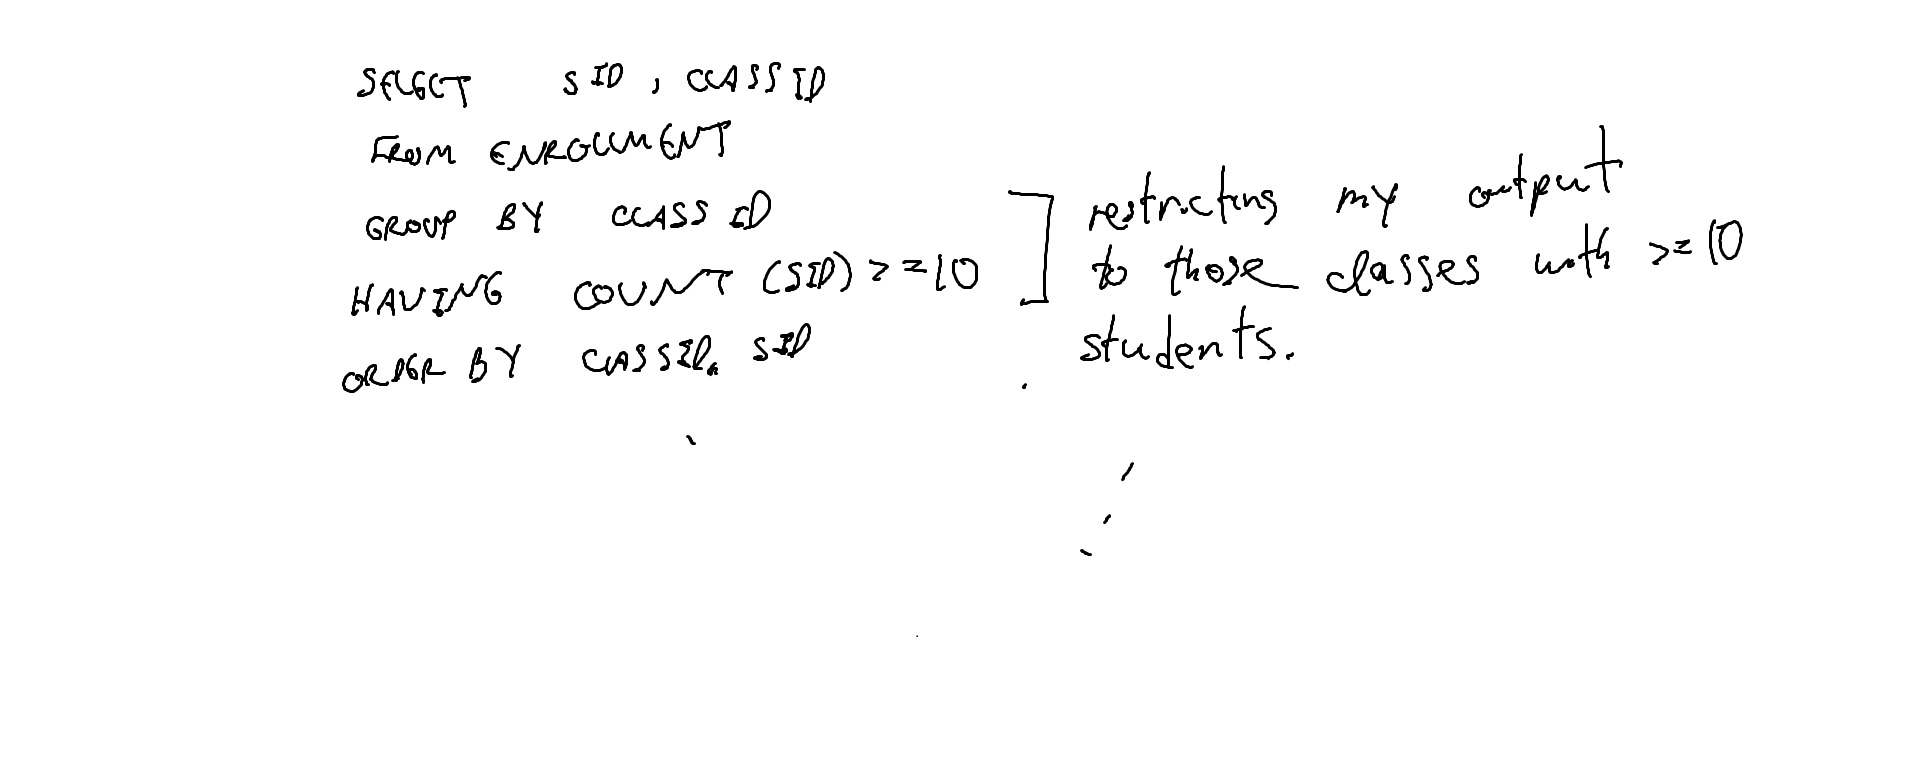 SELECT SID, CLASSID
FROM ENROLLMENT
GROUP BY CLASSID
HAVING COUNT (SID) >=10
ORDER BY CLASSID, SID
restricting my output
to those classes with >=10
students.